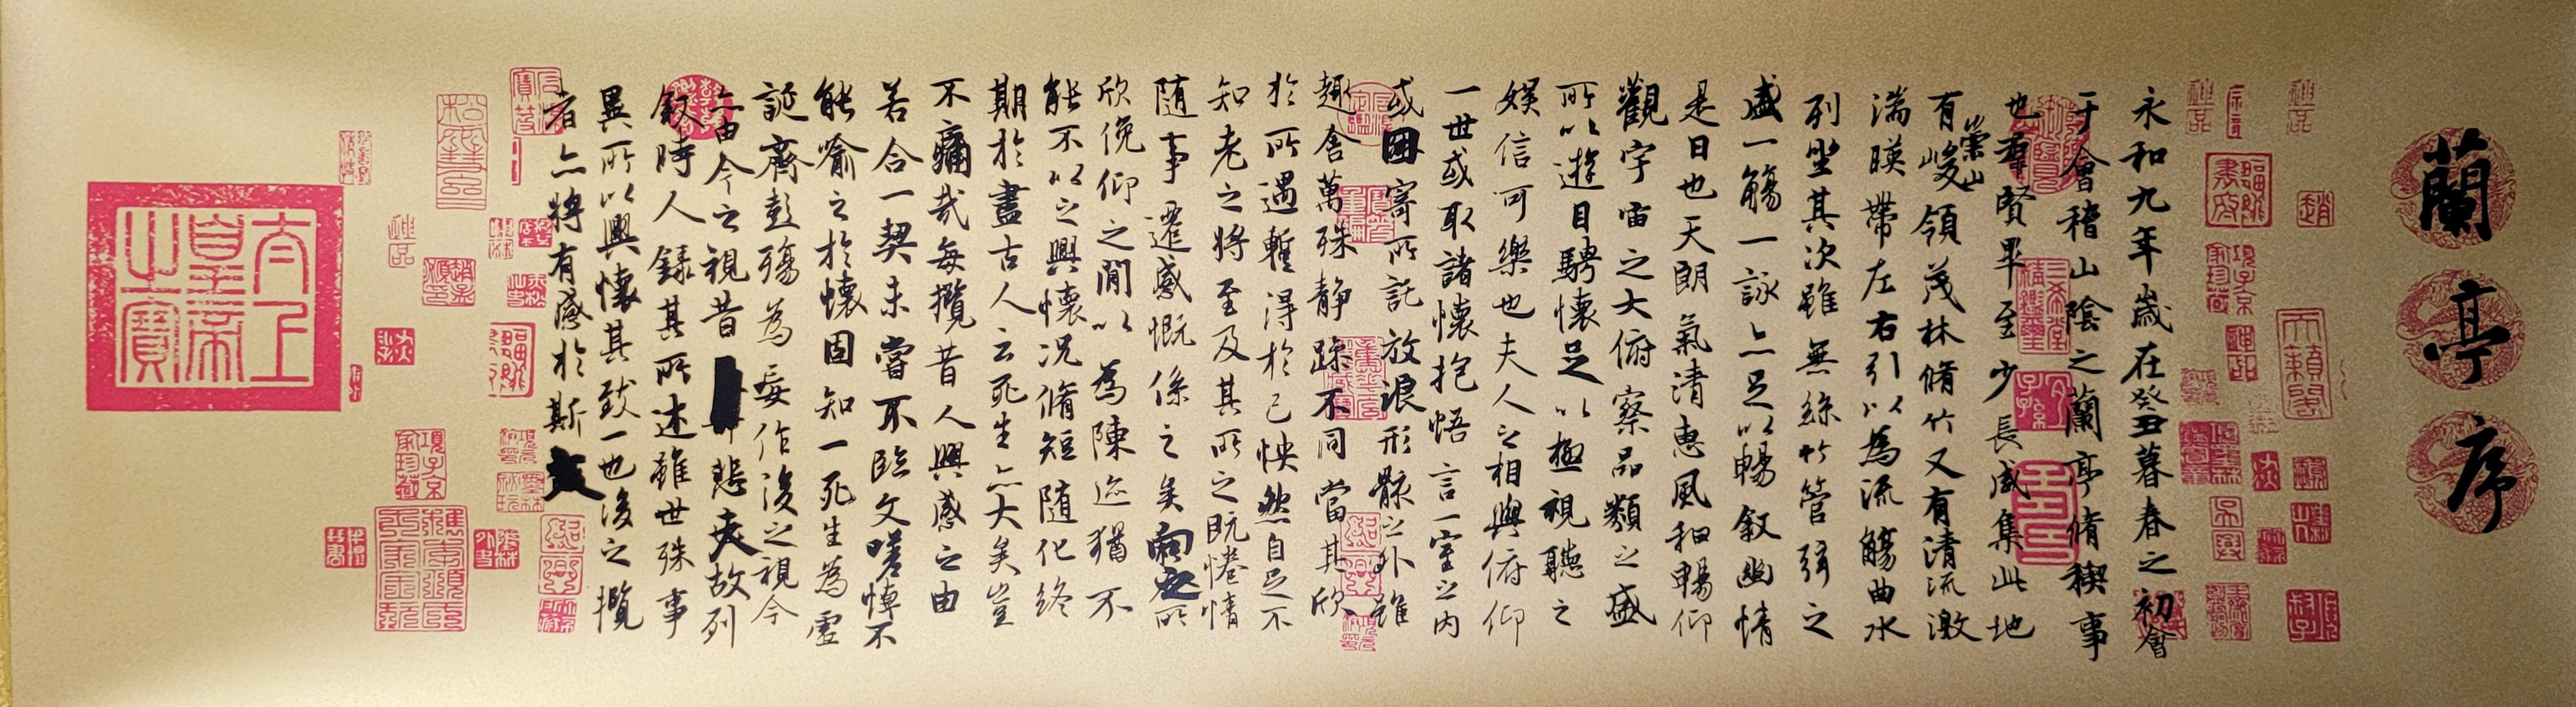 蘭亭序
永和九年歲在癸丑暮春之初會
于會稽山陰之蘭亭脩稧事
也羣賢畢至少長咸集此地
有崇山峻領茂林脩竹又有清流激
湍暎帶左右引以為流觴曲水
列坐其次雖無絲竹管弦之
盛一觴一詠亦足以暢叙幽情
是日也天朗氣清惠風和暢仰
觀宇宙之大俯察品類之盛
所以遊目騁懷足以極視聽之
娛信可樂也夫人之相與俯仰
一世或取諸懷抱悟言一室之內
或因寄所託放浪形骸之外雖
趣舍萬殊靜躁不同當其欣
於所遇暫得於己怏然自足不
知老之將至及其所之既惓情
隨事遷感慨係之矣向之所
欣俛仰之閒以為陳迹猶不
能不以之興懷況脩短隨化終
期於盡古人云死生亦大矣豈
不痛哉每攬昔人興感之由
若合一契未嘗不臨文嗟悼不
能喻之於懷固知一死生為虛
誕齊彭殤為妄作後之視今
亦由今之視昔悲夫故列
叙時人錄其所述雖世殊事
異所以興懷其致一也後之攬
者亦將有感於斯文
太上皇帝之寶